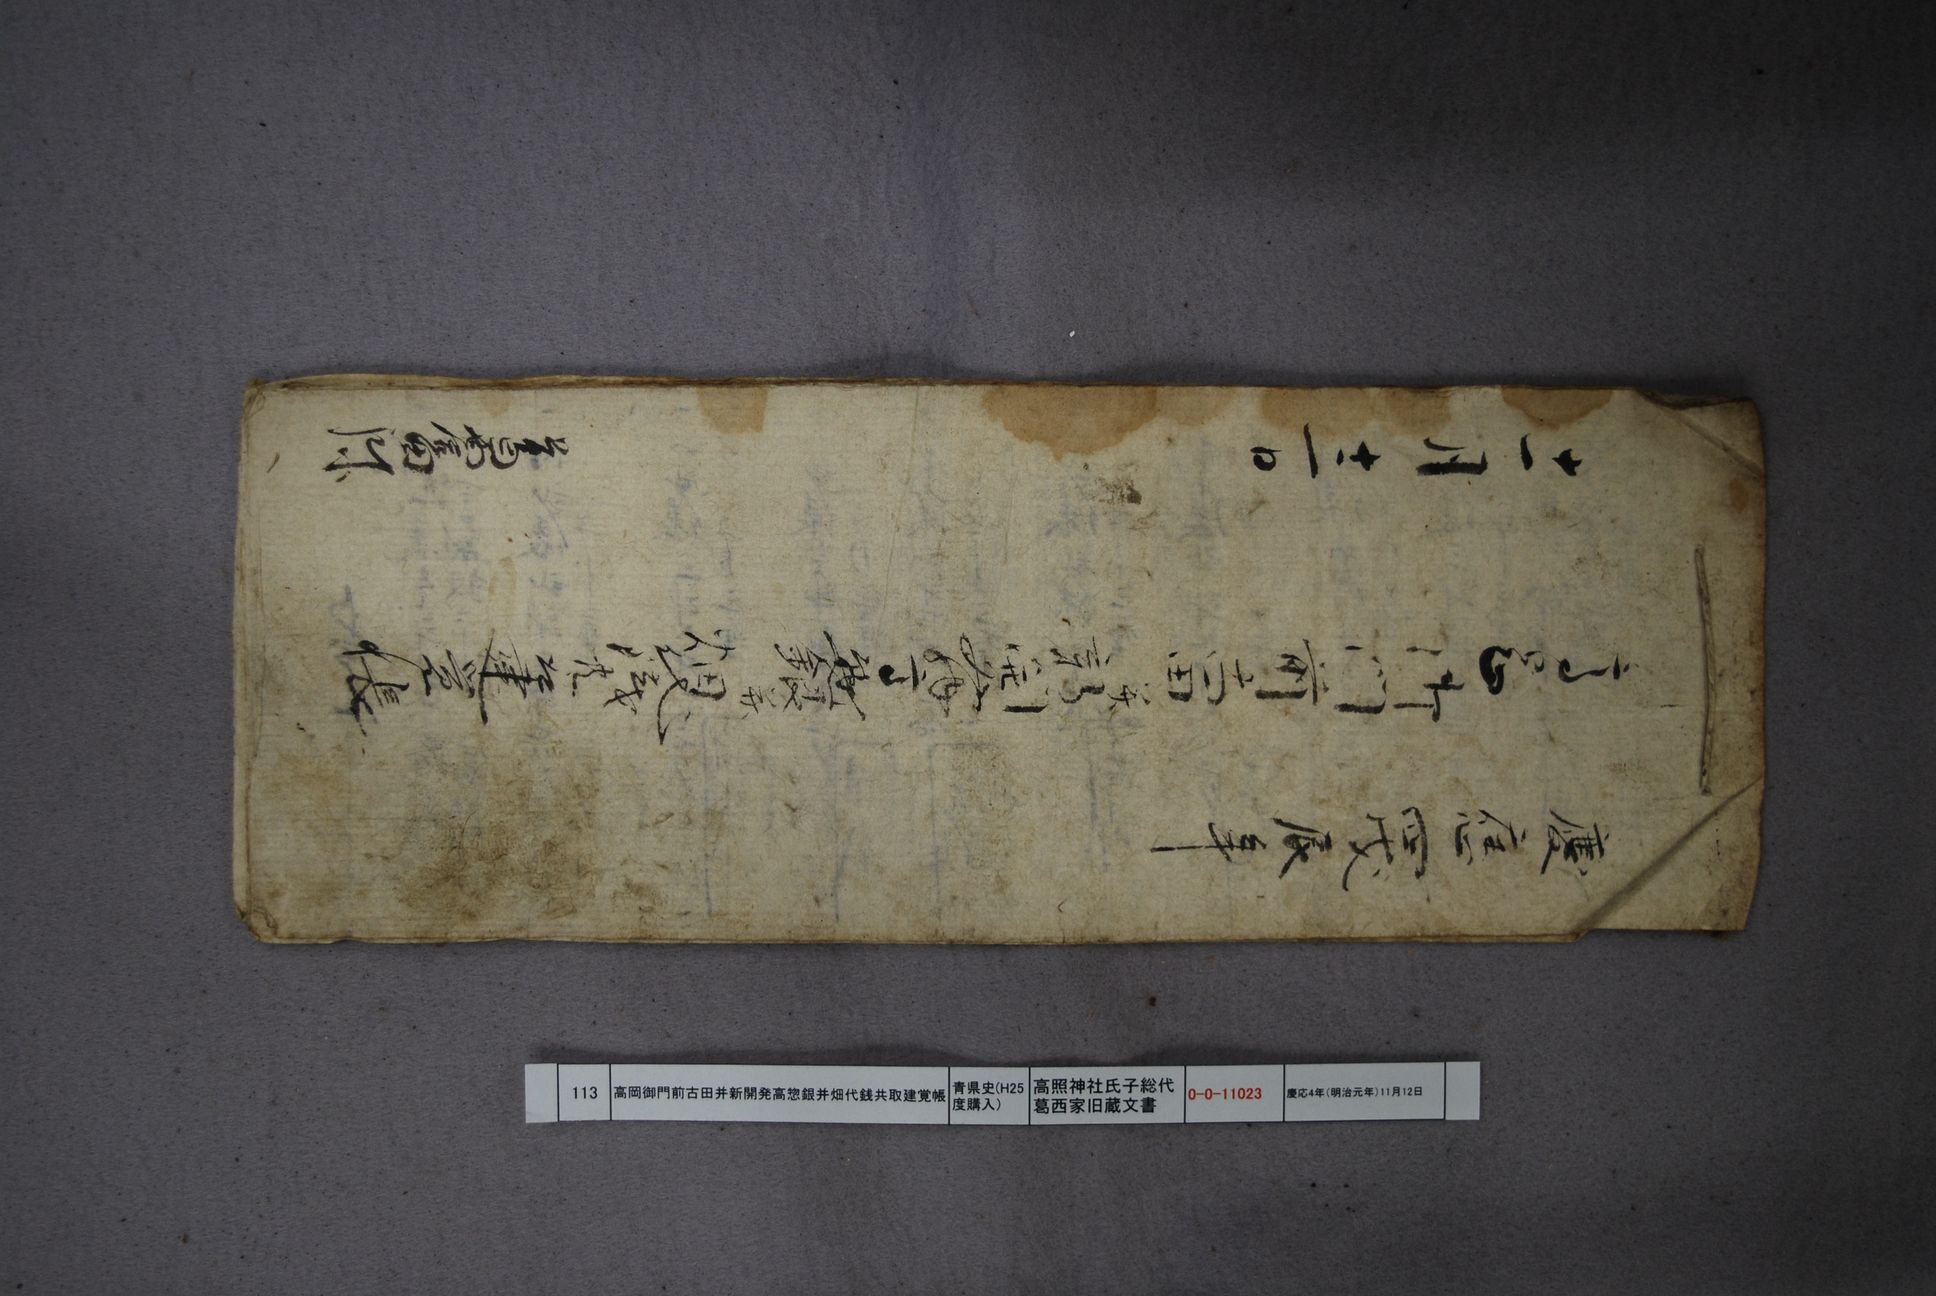 慶應四戊辰年
高岡御門前古田并新開發高惣銀并畑代銭共取建覚帳
十一月十二日
113
高岡御門前古田并新開発高惣銀并畑代銭共取建覚帳
青県史(H25
度購入)
高照神社氏子総代
葛西家旧蔵文書
0-0-11023
慶応4年(明治元年)11月12日